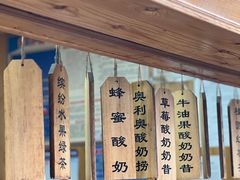 缤纷水果绿茶
蜂蜜酸奶
奥利奥酸奶捞
草莓酸奶奶昔
牛油果酸奶奶昔